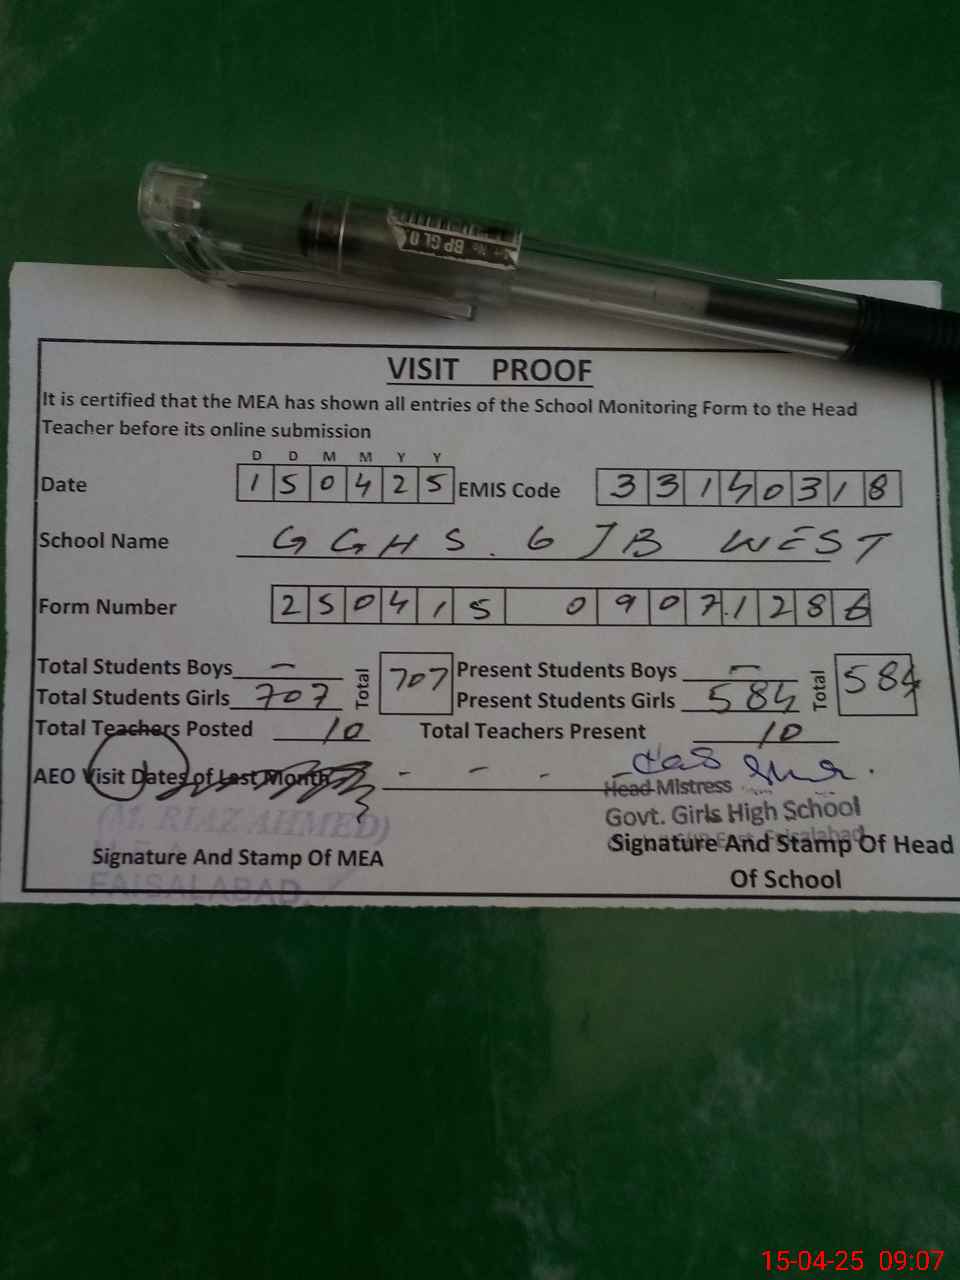 BP GL 0
VISIT PROOF
It is certified that the MEA has shown all entries of the School Monitoring Form to the Head
Teacher before its online submission
D D M M Y Y
Date 1 5 0 4 2 5 EMIS Code 3 3 1 4 0 3 1 8
School Name G G H S . 6 J B WEST
Form Number 2 5 0 4 1 5 0 9 0 7 1 2 8 6
Total Students Boys — Total 707 Present Students Boys — Total 584
Total Students Girls 707 Present Students Girls 584
Total Teachers Posted 10 Total Teachers Present 10
AEO Visit Dates of Last Month - - -
Head Mistress
(M. RIAZ AHMED) Govt. Girls High School
Faisalabad
Signature And Stamp Of MEA Signature And Stamp Of Head
Of School
FAISALABAD.
15-04-25 09:07